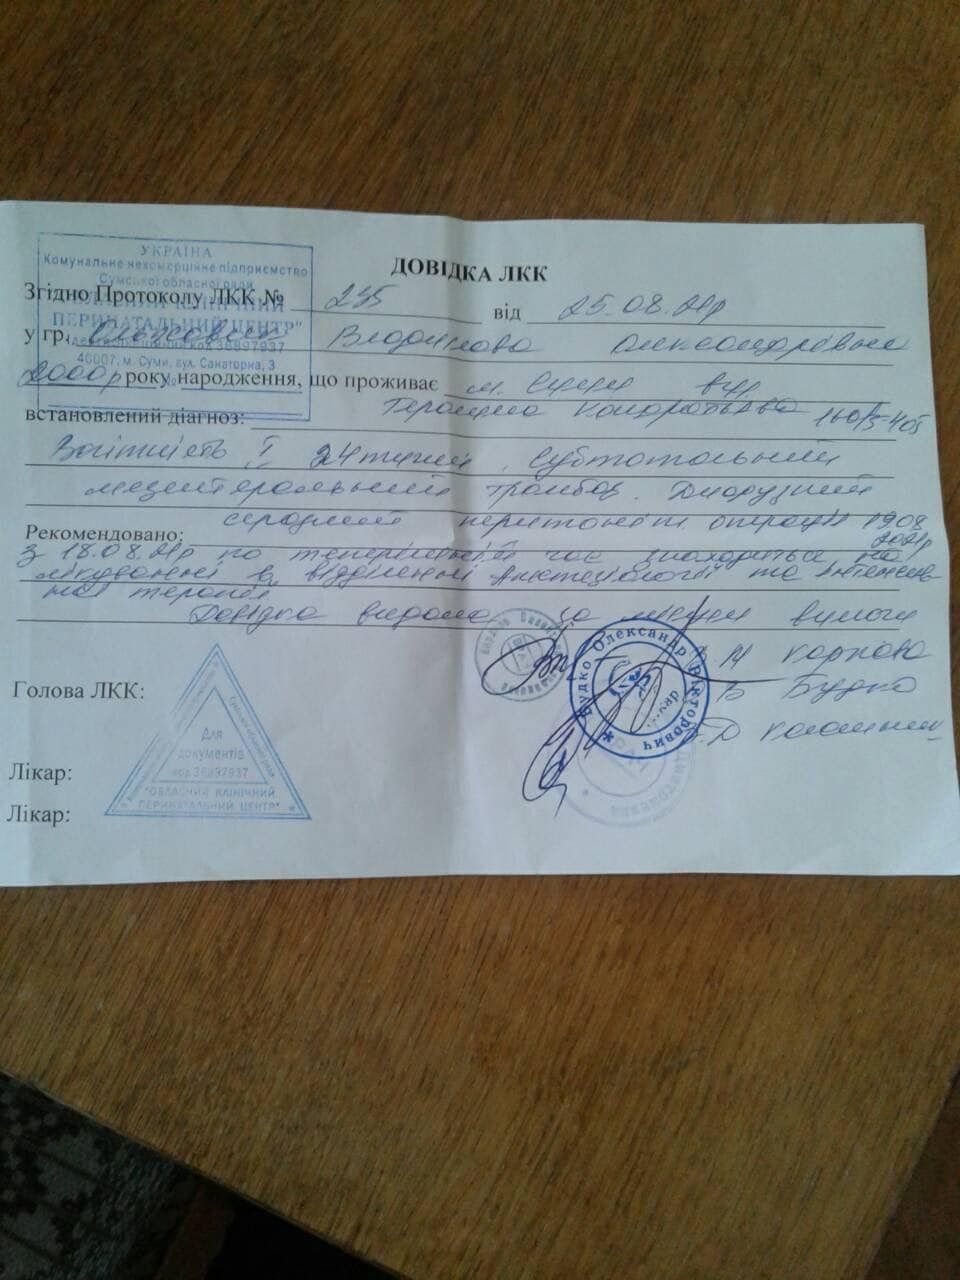 УКРАЇНА
Комунальне некомерційне підприємство
Сумської обласної ради
ПЕРИНАТАЛЬНИЙ ЦЕНТР"
40007, м. Суми, вул. Санаторна, 3
ДОВІДКА ЛКК
Згідно Протоколу ЛКК № 235 від 25.08.21р
у гр. Олександрівна
2000р року народження, що проживає м. Суми вул
Герасима Кондратьєва 160/5-405
встановлений діагноз:
Вагітність I 24 тижні. Субтотальний
мезентеральний тромбоз. Дифузний
серозний перитоніт. операція 19.08
2021р
Рекомендовано:
з 18.08.21р по теперішній час знаходиться на
лікуванні в відділенні анестезіології та інтенсив
ної терапії
Довідка видана за місцем вимоги
Голова ЛКК:
Лікар:
Лікар:
Для
документів
"ОБЛАСНИЙ КЛІНІЧНИЙ
ПЕРИНАТАЛЬНИЙ ЦЕНТР"
Будко Олександр Вікторович
Лікар
Будко